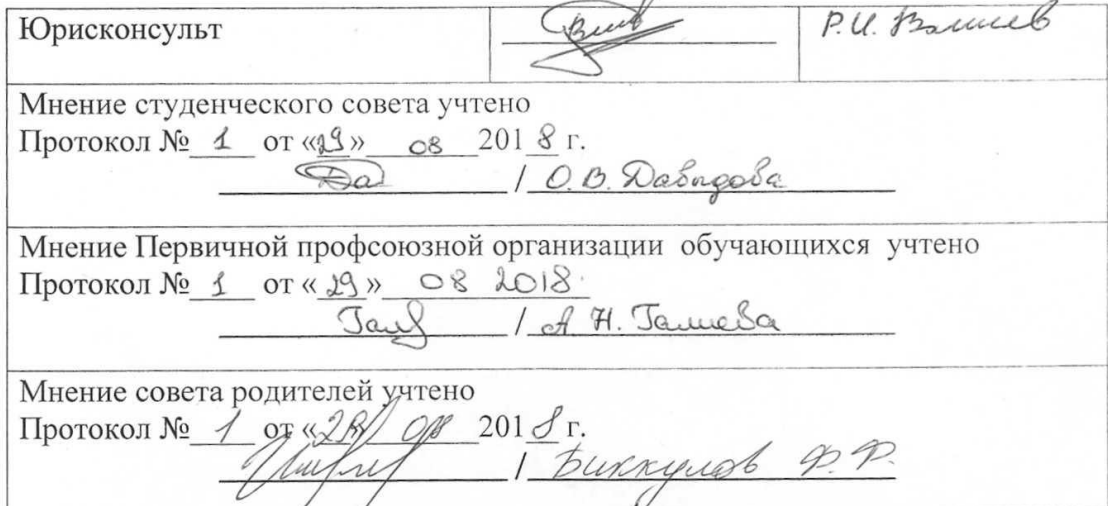 Юрисконсульт Р.И. Валиев
Мнение студенческого совета учтено
Протокол № 1 от «29» 08 2018 г.
/ О.В. Давыдова
Мнение Первичной профсоюзной организации обучающихся учтено
Протокол № 1 от «29» 08 2018.
/ А.Н. Галиева
Мнение совета родителей учтено
Протокол № 1 от «29» 08 2018 г.
/ Биккулов Ф.Ф.